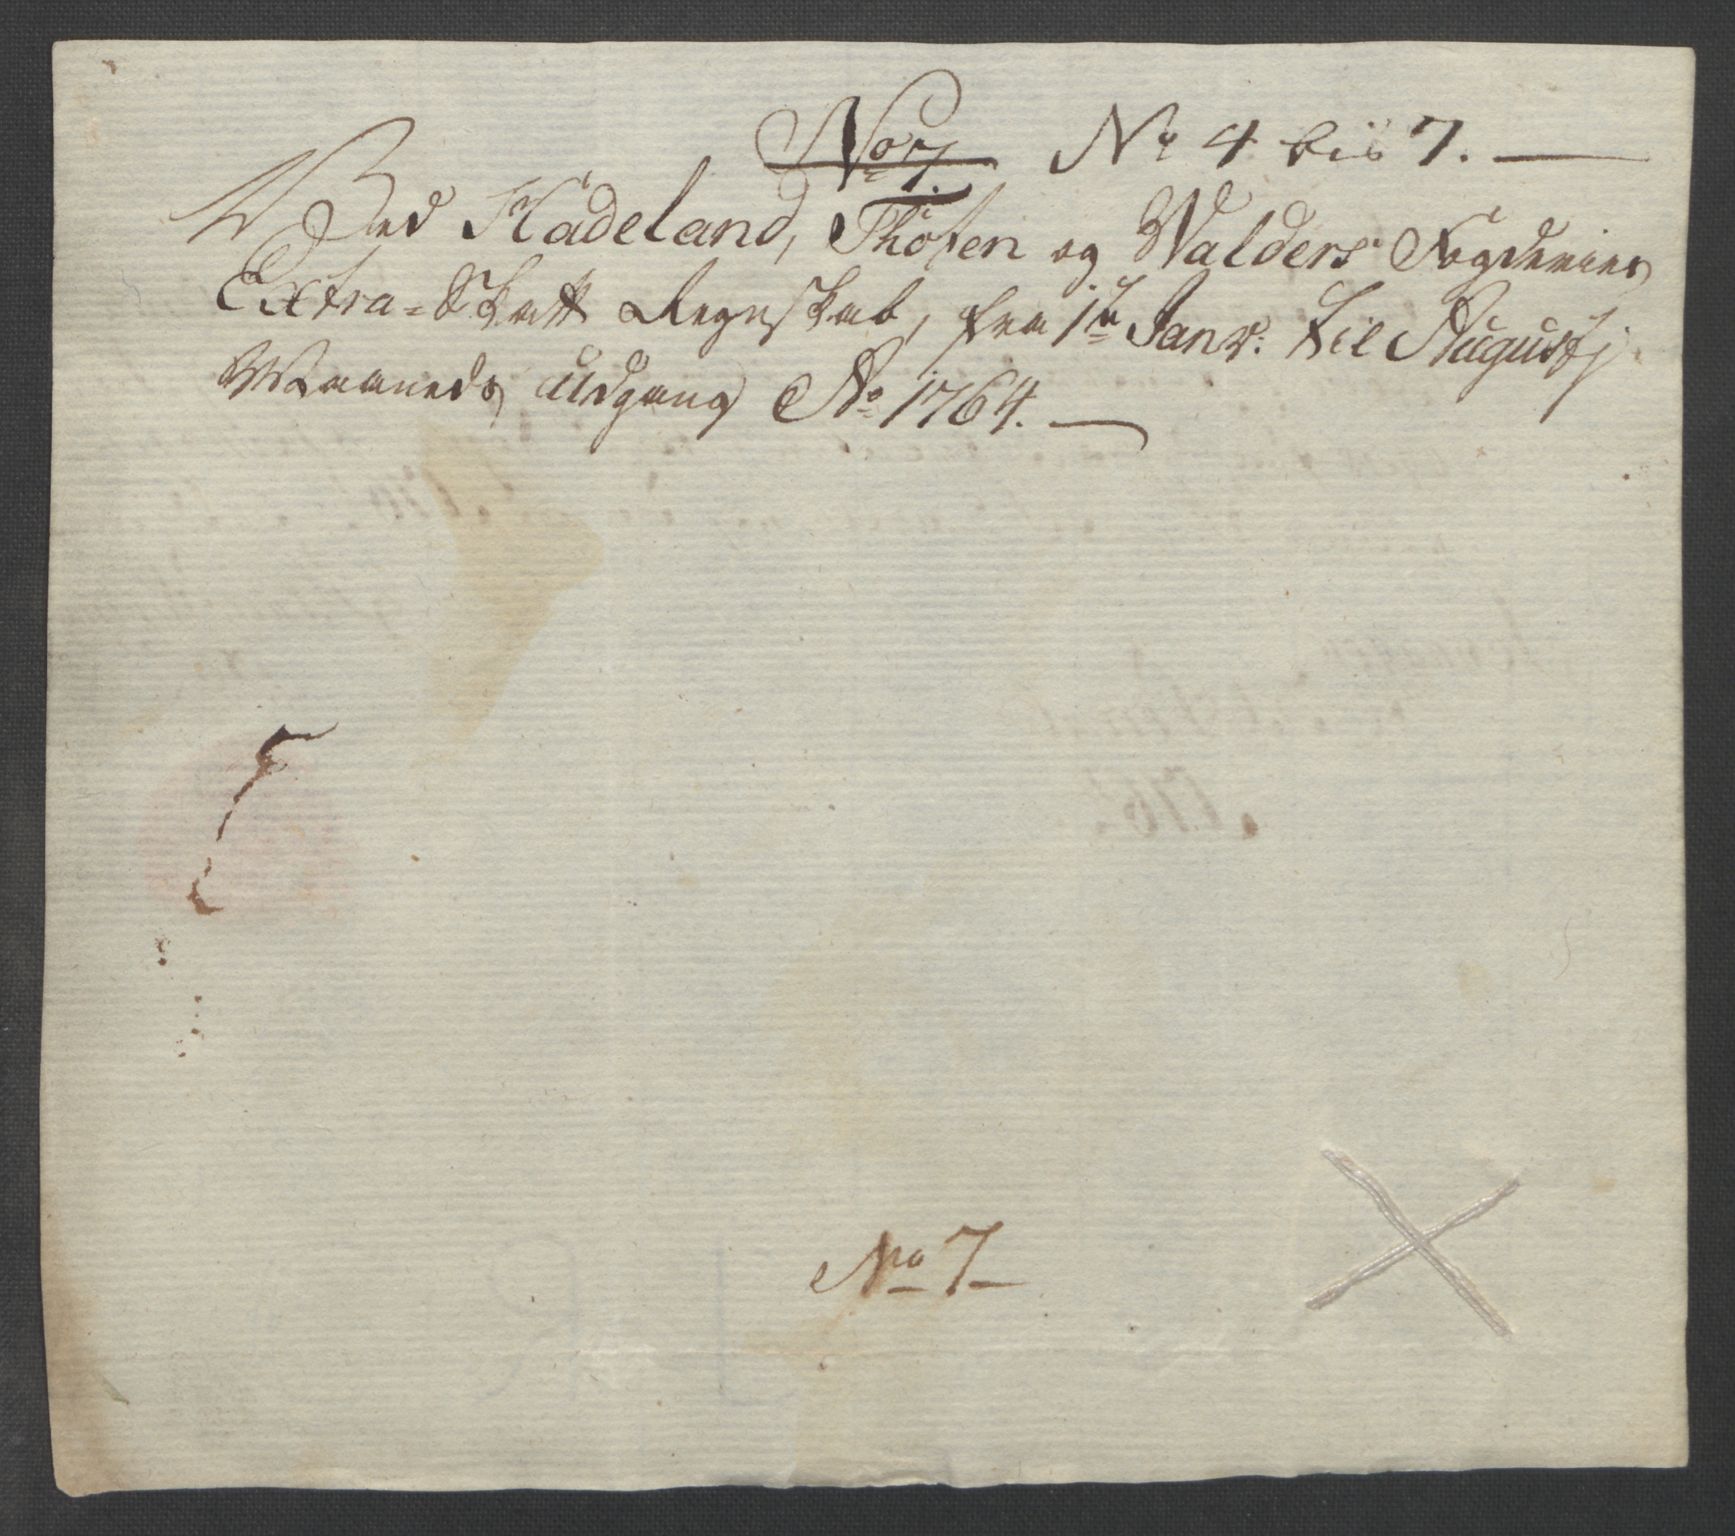 No 7. No 4 bis 7.
Ved Hadeland, Thoten og Walders Fogderies
Extra-Skatt Regnskab, fra 1te Janv: til Augustj
Maaneds Udgang Ao 1764.
No 7